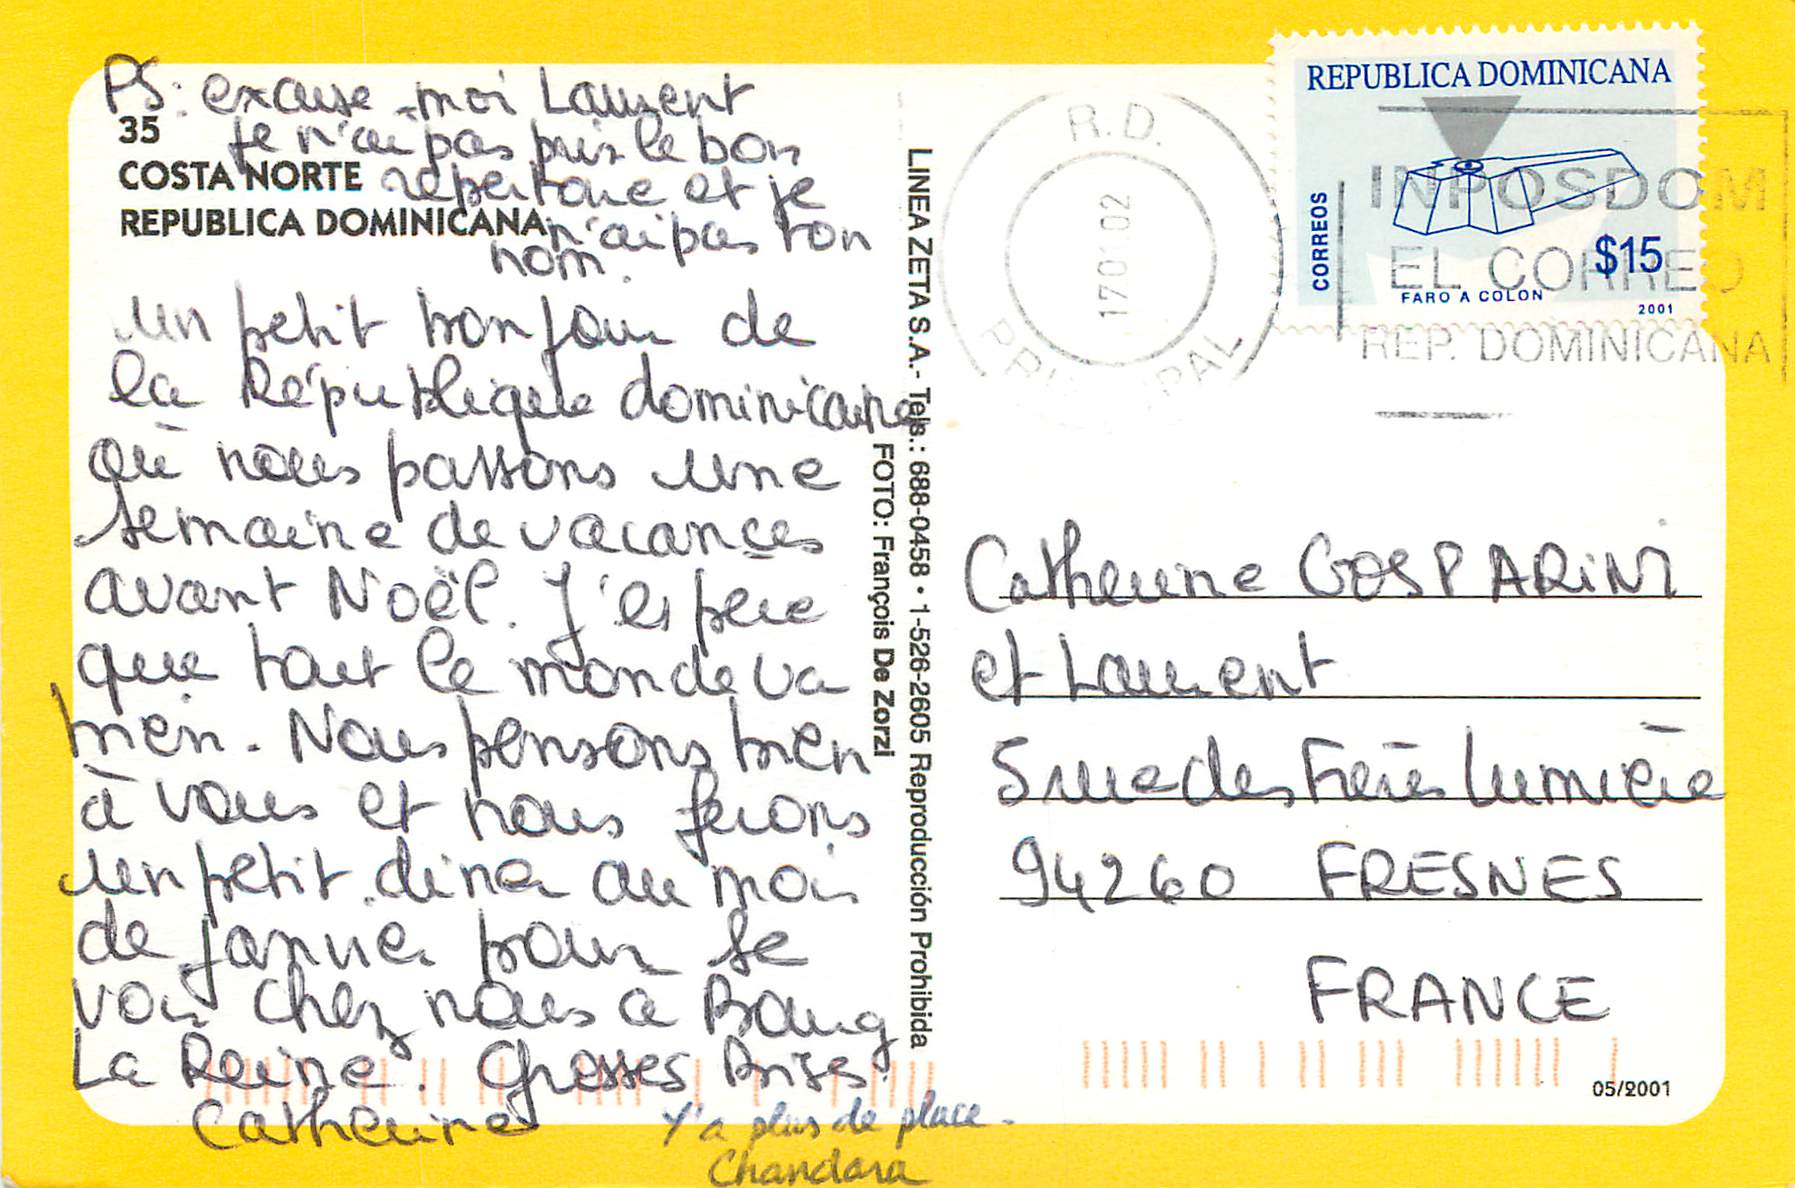 PS: excuse-moi Laurent
je n'ai pas pris le bon
répertoire et je
n'ai pas ton
nom.
35
COSTA NORTE
REPUBLICA DOMINICANA
un petit bonjour de
la République dominicaine
où nous passons une
semaine de vacances
avant Noël. J'espère
que tout le monde va
bien. Nous pensons bien
à vous et nous ferons
un petit diner au mois
de janvier pour se
voir chez nous à Bourg
La Reine. Grosses Bises.
Catherine
Y'a plus de place.
Chandara
LINEA ZETA S.A.- Tels.: 688-0458 • 1-526-2605 Reproducción Prohibida
FOTO: François De Zorzi
R.D.
170102
PRINCIPAL
REPUBLICA DOMINICANA
CORREOS
$15
FARO A COLON
2001
INPOSDOM
EL CORREO
REP. DOMINICANA
Catherine GOSPARINI
et Laurent
5 rue des Frères Lumière
94260 FRESNES
FRANCE
05/2001